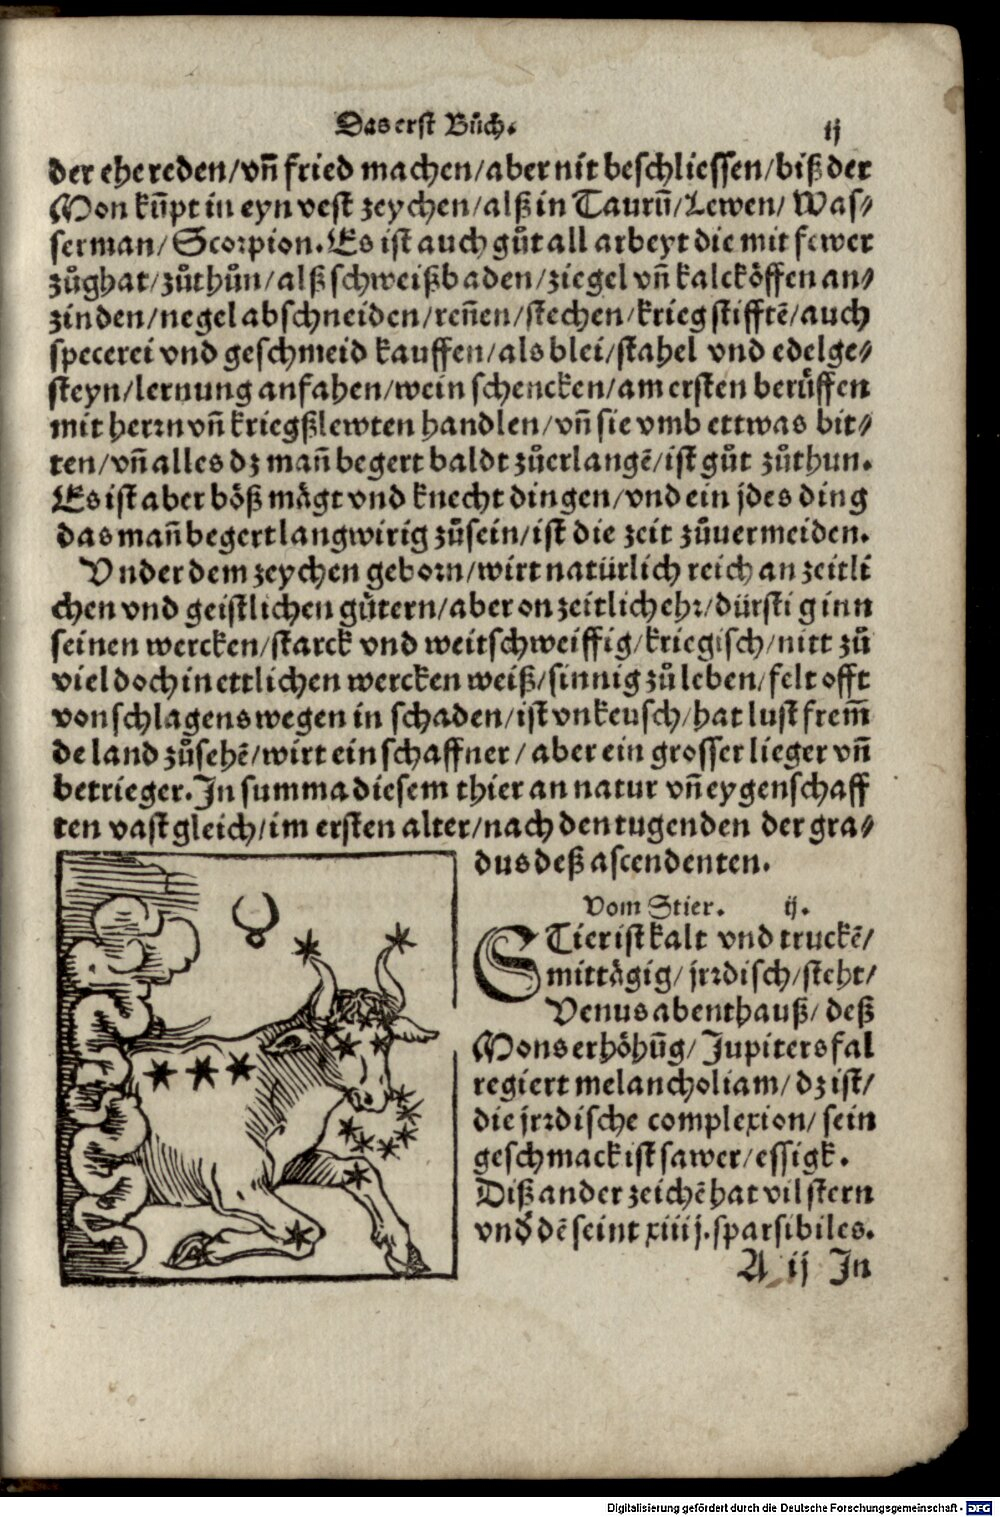 Das erst Bůch.
ij
der ehe reden/vñ fried machen/aber nit beschliessen/biß der
Mon kũpt in eyn vest zeychen/alß in Taurũ/Lewen/Was⸗
serman/Scorpion. Es ist auch gůt all arbeyt die mit fewer
zůg hat/zůthůn/alß schweißbaden/ziegel vñ kalcköffen an⸗
zinden/negel abschneiden/reñen/stechen/krieg stifftẽ/auch
specerei vnd geschmeid kauffen/als blei/stahel vnd edelge⸗
steyn/lernung anfahen/wein schencken/am ersten berůffen
mit herrn vñ kriegßlewten handlen/vñ sie vmb ettwas bit⸗
ten/vñ alles dz mañ begert baldt zůerlangẽ/ist gůt zůthun.
Es ist aber böß mägt vnd knecht dingen/vnd ein jdes ding
das mañ begert langwirig zůsein/ist die zeit zůuermeiden.
Vnder dem zeychen geborn/wirt natürlich reich an zeitli
chen vnd geistlichen gůtern/aber on zeitlich ehr/dürstig inn
seinen wercken/starck vnd weitschweiffig/kriegisch/nitt zů
viel doch in ettlichen wercken weiß/sinnig zů leben/felt offt
von schlagens wegen in schaden/ist vnkeusch/hat lust frem̃
de land zůsehẽ/wirt ein schaffner/aber ein grosser lieger vñ
betrieger. In summa diesem thier an natur vñ eygenschaff
ten vast gleich/im ersten alter/nach den tugenden der gra⸗
dus deß ascendenten.
Vom Stier. ij.
STier ist kalt vnd truckẽ/
mittägig/jrrdisch/steht/
Venus abenthauß/deß
Mons erhöhũg/Jupiters fal
regiert melancholiam/dz ist/
die jrrdische complexion/sein
geschmack ist sawer/essigk.
Diß ander zeichẽ hat vil stern
vnd dẽ seint xiiij. sparsibiles.
A ij In
Digitalisierung gefördert durch die Deutsche Forschungsgemeinschaft - DFG